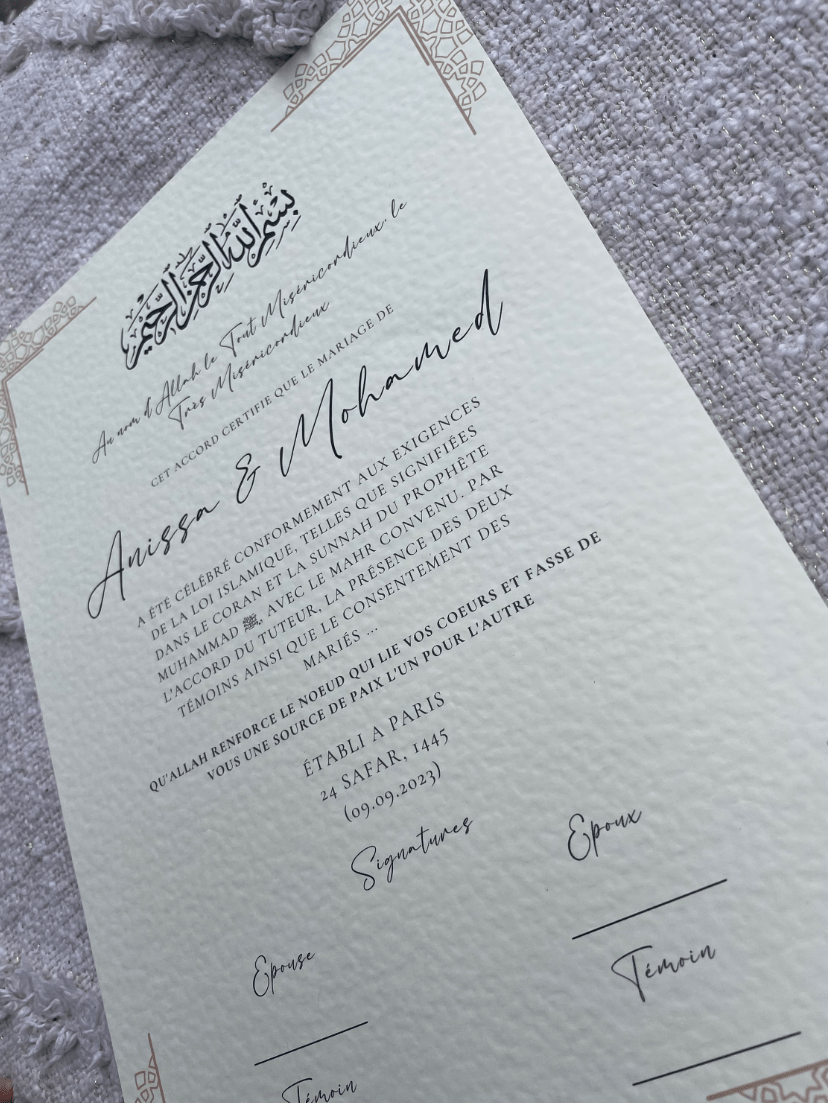 بسم الله الرحمن الرحيم
Au nom d'Allah le Tout Miséricordieux, le
Très Miséricordieux
CET ACCORD CERTIFIE QUE LE MARIAGE DE
Anissa & Mohamed
A ÉTÉ CÉLÉBRÉ CONFORMEMENT AUX EXIGENCES
DE LA LOI ISLAMIQUE, TELLES QUE SIGNIFIÉES
DANS LE CORAN ET LA SUNNAH DU PROPHÈTE
MUHAMMAD ﷺ, AVEC LE MAHR CONVENU. PAR
L'ACCORD DU TUTEUR, LA PRÉSENCE DES DEUX
TÉMOINS AINSI QUE LE CONSENTEMENT DES
MARIÉS ...
QU'ALLAH RENFORCE LE NOEUD QUI LIE VOS COEURS ET FASSE DE
VOUS UNE SOURCE DE PAIX L'UN POUR L'AUTRE
ÉTABLI A PARIS
24 SAFAR, 1445
(09.09.2023)
Signatures
Epouse
Epoux
Témoin
Témoin